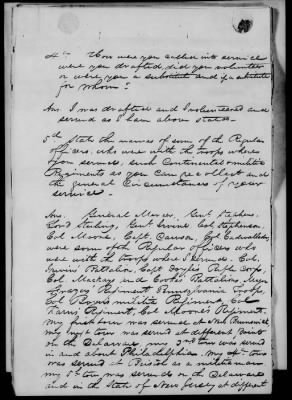 4th How were you called into service
were you drafted, did you volunteer
or were you a substitute and if a substitute
for whom?
Ans I was drafted and I volunteered and
served as I have above stated.
5th State the names of some of the Regular
officers, who were with the troops where
you served, such Continental & militia
Regiments as you can recollect and
the general Circumstances of your
service.
Ans. General Mercer, Genl Stephens,
Lord Sterling, Genl Irvine Col
Col Moore, Capt Col Cadwallader,
were some of the Regular officers who
were with the troops where I served. Col.
Irvins Battalion, Capt Rifle Corps,
Col Mackeys and Battalions, Major
Regiment Pennsylvania troops,
Col militia Regiment, Col
Regiment, Col Moores Regiment.
My first tour was served at New Brunswick
My 2nd tour was served at different points
on the Delaware, my 3rd tour was served
in and about Philadelphia. my 4th tour
was served at Bristol as a militia man
my 5th tour was served on the Delaware
and in the State of New Jersey at different